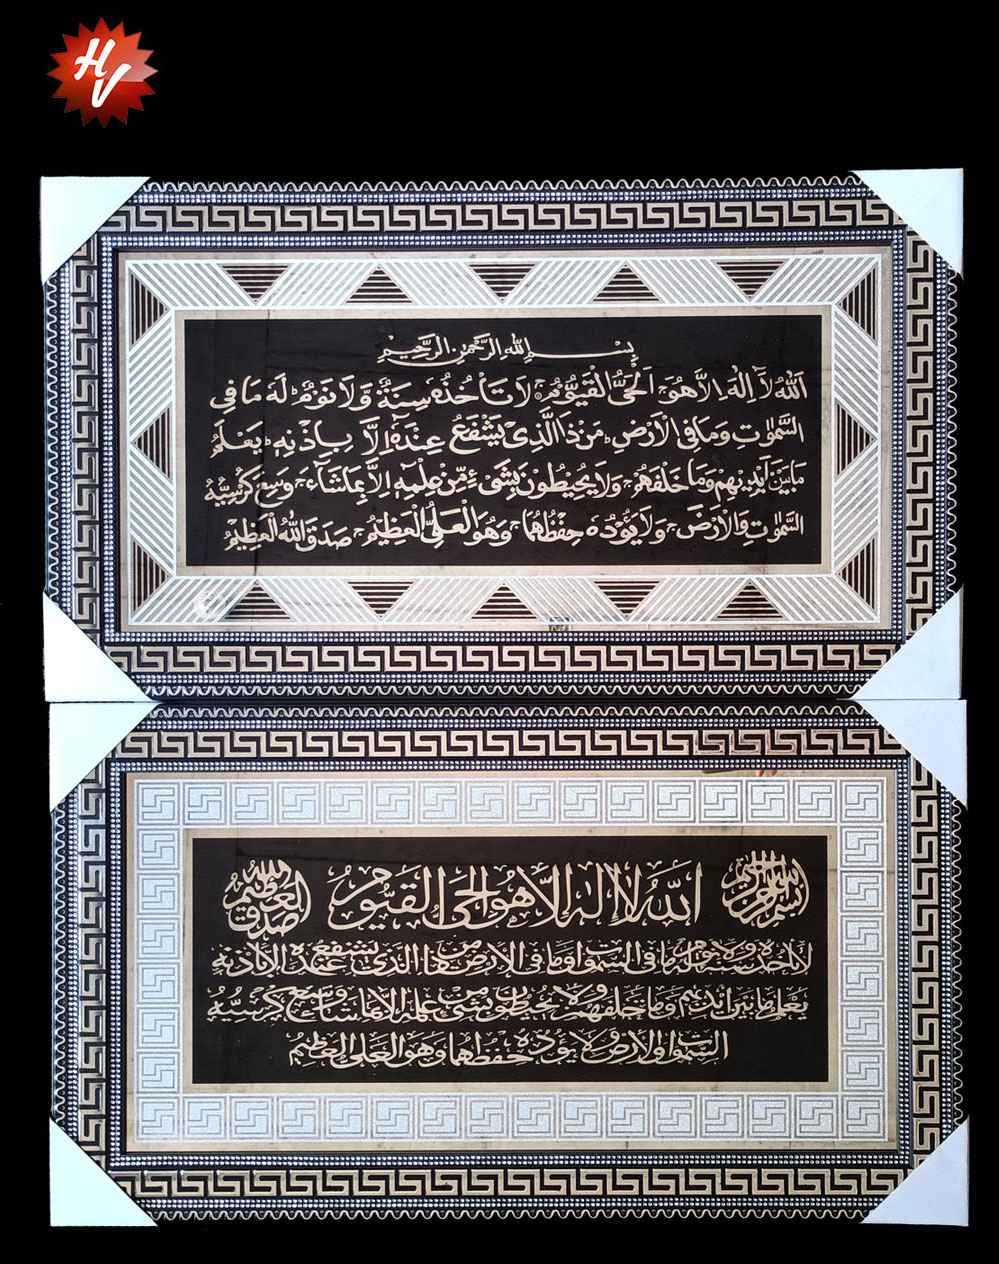 HV
بِسْمِ اللهِ الرَّحْمٰنِ الرَّحِيْمِ
اَللّٰهُ لَآ اِلٰهَ اِلَّا هُوَۚ اَلْحَيُّ الْقَيُّوْمُ ۚ لَا تَأْخُذُهٗ سِنَةٌ وَّلَا نَوْمٌ ؕ لَهٗ مَا فِي
السَّمٰوٰتِ وَمَا فِي الْاَرْضِ ؕ مَنْ ذَا الَّذِيْ يَشْفَعُ عِنْدَهٗٓ اِلَّا بِاِذْنِهٖ ؕ يَعْلَمُ
مَا بَيْنَ اَيْدِيْهِمْ وَمَا خَلْفَهُمْ ۚ وَلَا يُحِيْطُوْنَ بِشَيْءٍ مِّنْ عِلْمِهٖٓ اِلَّا بِمَا شَآءَ ۚ وَسِعَ كُرْسِيُّهُ
السَّمٰوٰتِ وَالْاَرْضَ ۚ وَلَا يَئُوْدُهٗ حِفْظُهُمَا ۚ وَهُوَ الْعَلِيُّ الْعَظِيْمُ ۚ صَدَقَ اللّٰهُ الْعَظِيْمُ
بسم الله الرحمن الرحيم الله لا اله الا هو الحي القيوم صدق الله العظيم
لا تاخذه سنة ولا نوم له ما في السموات وما في الارض من ذا الذي يشفع عنده الا باذنه
يعلم ما بين ايديهم وما خلفهم ولا يحيطون بشيء من علمه الا بما شاء وسع كرسيه
السموات والارض ولا يؤده حفظهما وهو العلي العظيم